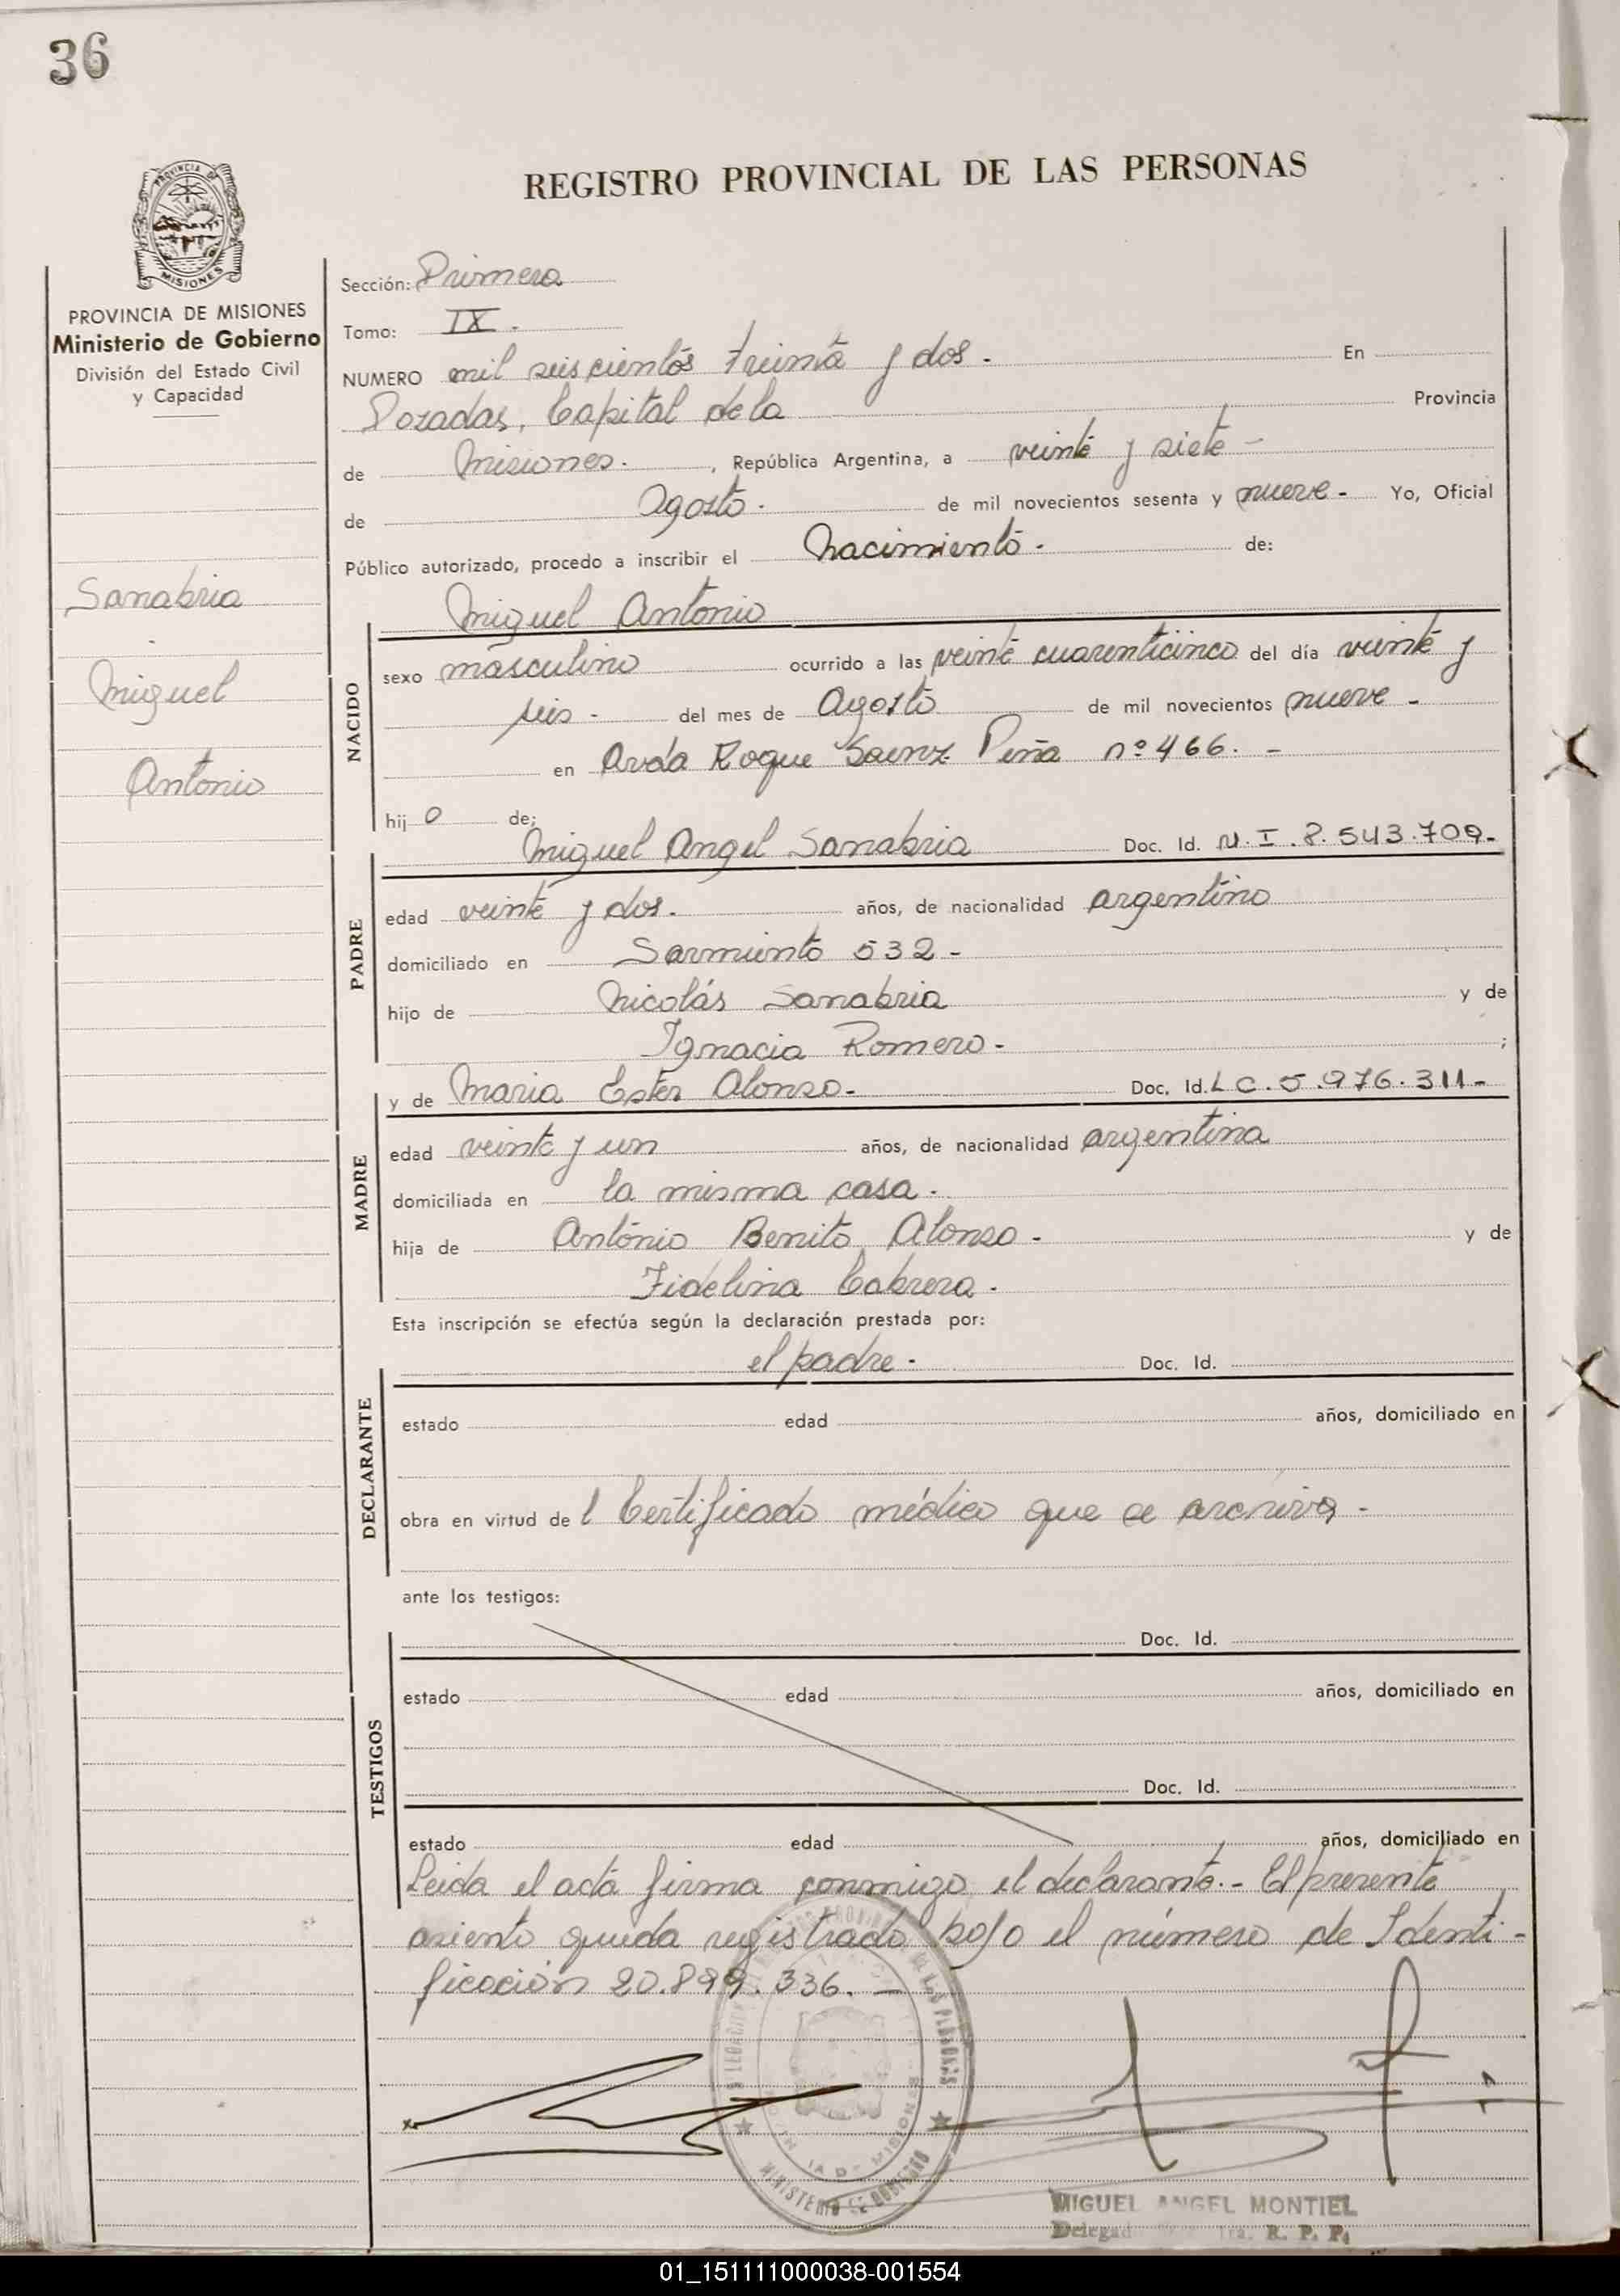 36
REGISTRO PROVINCIAL DE LAS PERSONAS
PROVINCIA DE
MISIONES
PROVINCIA DE MISIONES
Ministerio de Gobierno
División del Estado Civil
y Capacidad
Sanabria
Miguel
Antonio
Sección: Primera
Tomo: IX.
NUMERO mil seiscientos treinta y dos. En
Posadas, Capital de la Provincia
de Misiones. , República Argentina, a veinte y siete
de Agosto. de mil novecientos sesenta y nueve - Yo, Oficial
Público autorizado, procedo a inscribir el Nacimiento. de:
Miguel Antonio
NACIDO
sexo masculino ocurrido a las veinte cuarenticinco del día veinte y
seis - del mes de Agosto de mil novecientos nueve -
en Avda Roque Saenz Peña nº 466. -
hij o de;
Miguel Angel Sanabria Doc. Id. N.I.8.543.709-
PADRE
edad veinte y dos. años, de nacionalidad argentino
domiciliado en Sarmiento 532 -
hijo de Nicolás Sanabria y de
Ignacia Romero- ;
y de Maria Ester Alonso- Doc. Id. L C.5.976.311-
MADRE
edad veinte y un años, de nacionalidad argentina
domiciliada en la misma casa.
hija de Antonio Benito Alonso - y de
Fidelina Cabrera.
Esta inscripción se efectúa según la declaración prestada por:
el padre. Doc. Id.
DECLARANTE
estado edad años, domiciliado en
obra en virtud de l Certificado médico que se archiva -
ante los testigos:
Doc. Id.
TESTIGOS
estado edad años, domiciliado en
Doc. Id.
estado edad años, domiciliado en
Leida el acta firma conmigo el declarante.- El presente
asiento queda registrado bajo el número de Identi-
ficación 20.899.336. -
MINISTERIO DE GOBIERNO
MIGUEL ANGEL MONTIEL
R. P. P.
01_151111000038-001554